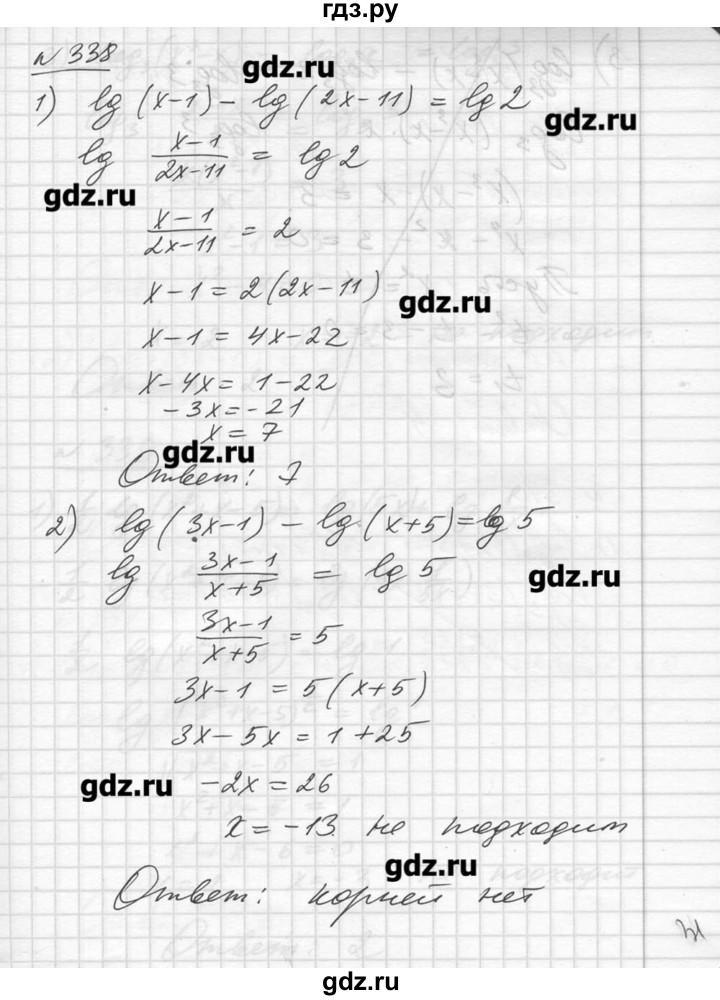 гдз.ру
№ 338
gdz.ru
1) lg (x-1) - lg (2x-11) = lg 2
gdz.ru
lg (x-1)/(2x-11) = lg 2
gdz.ru
(x-1)/(2x-11) = 2
x-1 = 2(2x-11)
gdz.ru
x-1 = 4x-22
x-4x = 1-22
-3x = -21
x = 7
gdz.ru
Ответ: 7
2) lg (3x-1) - lg (x+5) = lg 5
lg (3x-1)/(x+5) = lg 5
gdz.ru
(3x-1)/(x+5) = 5
3x-1 = 5(x+5)
3x-5x = 1+25
gdz.ru
-2x = 26
x = -13 не подходит
gdz.ru
Ответ: корней нет
gdz.ru